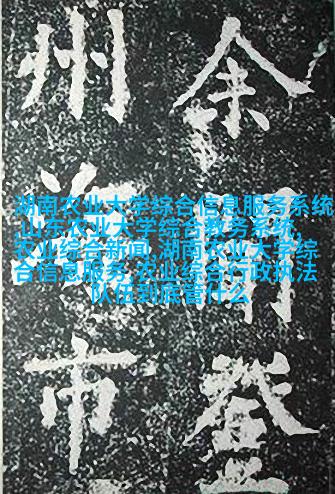 湖南农业大学综合信息服务系统
,山东农业大学综合教务系统,
农业综合新闻,湖南农业大学综
合信息服务,农业综合行政执法
队伍到底管什么
余
登
州
市